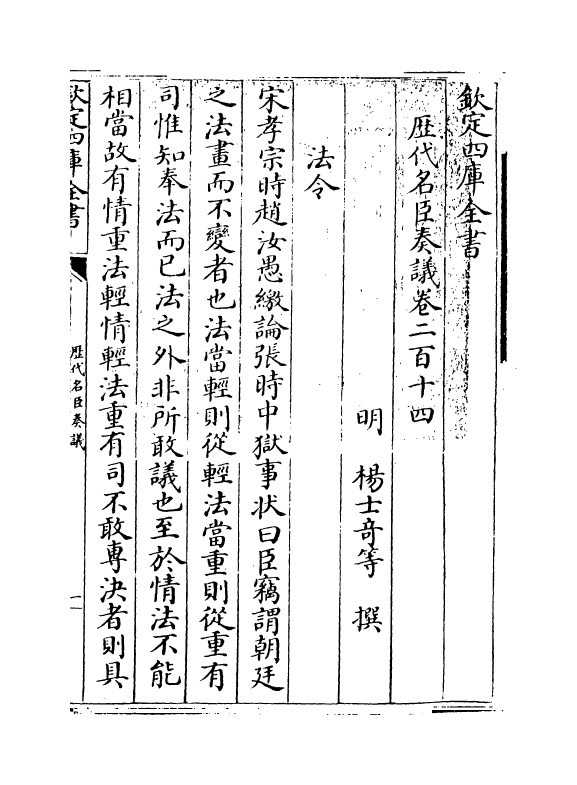 欽定四庫全書
歴代名臣奏議卷二百十四
明　楊士竒等　撰
法令
宋孝宗時趙汝愚繳論張時中獄事状曰臣竊謂朝廷
之法畫而不變者也法當輕則從輕法當重則從重有
司惟知奉法而已法之外非所敢議也至於情法不能
相當故有情重法輕情輕法重有司不敢專決者則具
欽定四庫全書
歴代名臣奏議
一